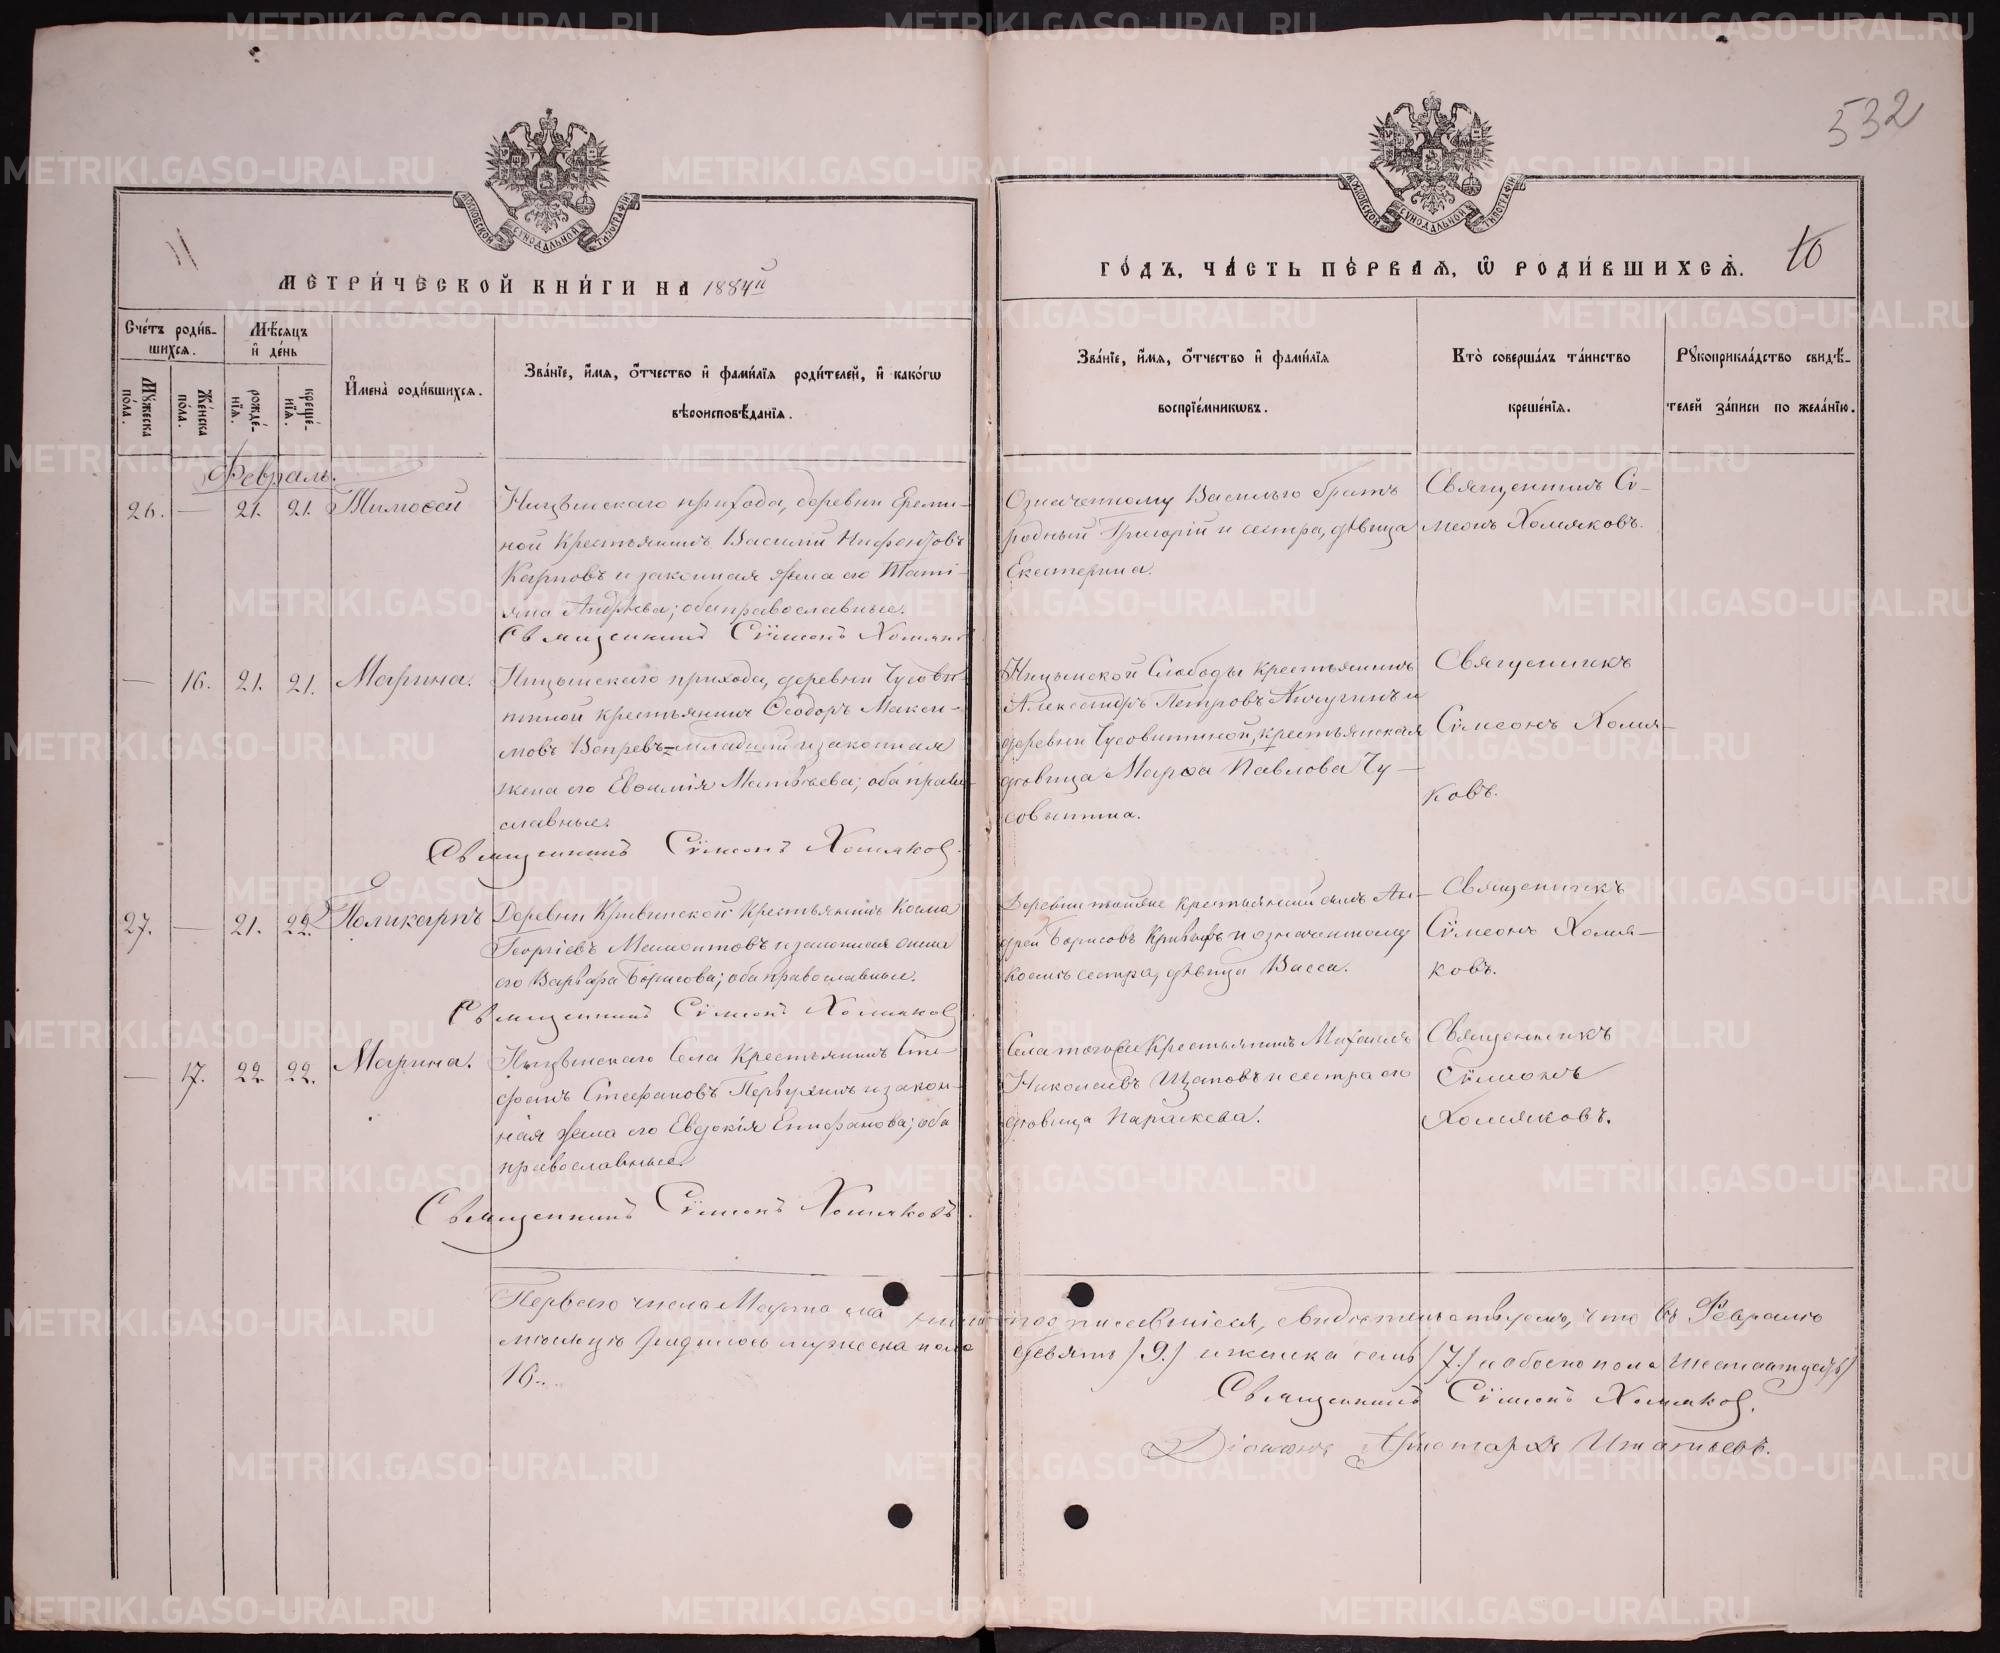 532
МОСКОВСКОЙ СѴНОДАЛЬНОЙ ТИПОГРАФІИ
МОСКОВСКОЙ СѴНОДАЛЬНОЙ ТИПОГРАФІИ
11
МЕТРИ́ЧЕСКОЙ КНИ́ГИ НА 1884й
ГО́ДЪ, ЧА́СТЬ ПЕ́РВАЯ, Ѡ РОДИ́ВШИХСЯ.
10
Сче́тъ роди́в-
шихся.
Мѣ́сяцъ
и де́нь
Му́жеска
по́ла.
Же́нска
по́ла.
рожде́-
нїя.
креще́-
нїя.
Имена̀ роди́вшихся.
Зва́нїе, и́мя, о́тчество и фами́лїя роди́телей, и како́гѡ
вѣроисповѣ́данїя.
Зва́нїе, и́мя, о́тчество и фами́лїя
воспрїе́мникѡвъ.
Кто̀ соверша́лъ та́инство
креще́нїя.
Рꙋкоприкла́дство свидѣ́-
телей за́писи по жела́нїю.
Февраль.
26. — 21. 21. Тимоѳей
Ницынскаго прихода, деревни Ереми-
ной крестьянинъ Василий Нифонтовъ
Карповъ и законная жена его Тати-
яна Андрѣева; оба православные.
Священникъ Сѵмеонъ Хомяков
Означенному Василью братъ
родный Григорій и сестра, дѣвица
Екатерина.
Священникъ Сѵ-
меонъ Хомяковъ.
— 16. 21. 21. Марина.
Ницынскаго прихода, деревни Чусови-
тиной крестьянинъ Ѳеодоръ Макси-
мовъ Вепревъ-младший и законная
жена его Евѳимія Матѳѣева; оба право-
славные.
Священникъ Сѵмеонъ Хомяков.
Ницынской Слободы крестьянинъ
Александръ Петровъ Анчугинъ и
деревни Чусовитиной, крестьянская
дѣвица Марѳа Павлова Чу-
совитина.
Священникъ
Сѵмеонъ Хомя-
ковъ.
27. — 21. 22. Поликарпъ
Деревни Кривинской крестьянинъ Косма
Георгіевъ Мамонтовъ и законная жена
его Варвара Борисова; оба православные.
Священникъ Сѵмеонъ Хомяков
Деревни тойже крестьянский сынъ Ан-
дрей Борисовъ и означенному
Космѣ сестра, дѣвица Васса.
Священникъ
Сѵмеонъ Хомя-
ковъ.
— 17. 22. 22. Марина.
Ницынскаго Села крестьянинъ Сте-
фанъ Стефановъ Первухинъ и закон-
ная жена его Евдокія Епифанова; оба
православные.
Священникъ Сѵмеонъ Хомяковъ.
Села тогоже крестьянинъ Михаилъ
Николаевъ и сестра его
дѣвица Параскева.
Священникъ
Сѵмеонъ
Хомяковъ.
Перваго числа Марта мы нижеподписавшіеся, свидѣтельствуемъ, что въ Февралѣ
мѣсяцѣ родилось мужеска пола девять /9./ и женска семь /7./ и обоего пола шестнадцать/
16..
Священникъ Сѵмеонъ Хомяков.
Діаконъ Аристархъ Игнатьевъ.
METRIKI.GASO-URAL.RU